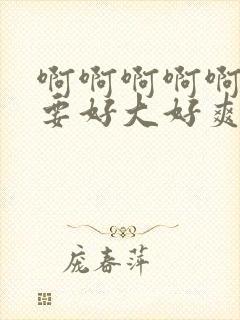 啊啊啊啊啊
要好大好爽
庞春萍